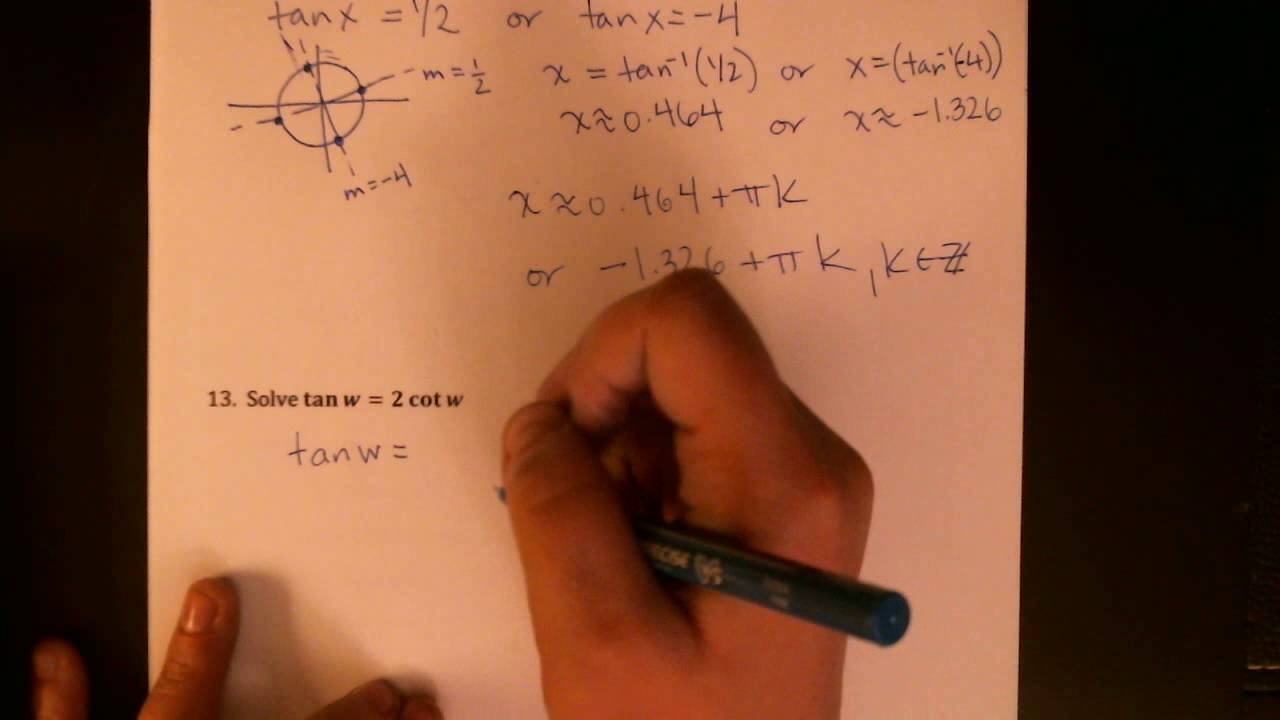 tan x = 1/2 or tan x = -4
m = 1/2 x = tan⁻¹(1/2) or x = (tan⁻¹(-4))
x ≈ 0.464 or x ≈ -1.326
m = -4
x ≈ 0.464 + πk
or -1.326 + πk, k ∈ ℤ
13. Solve tan w = 2 cot w
tan w =